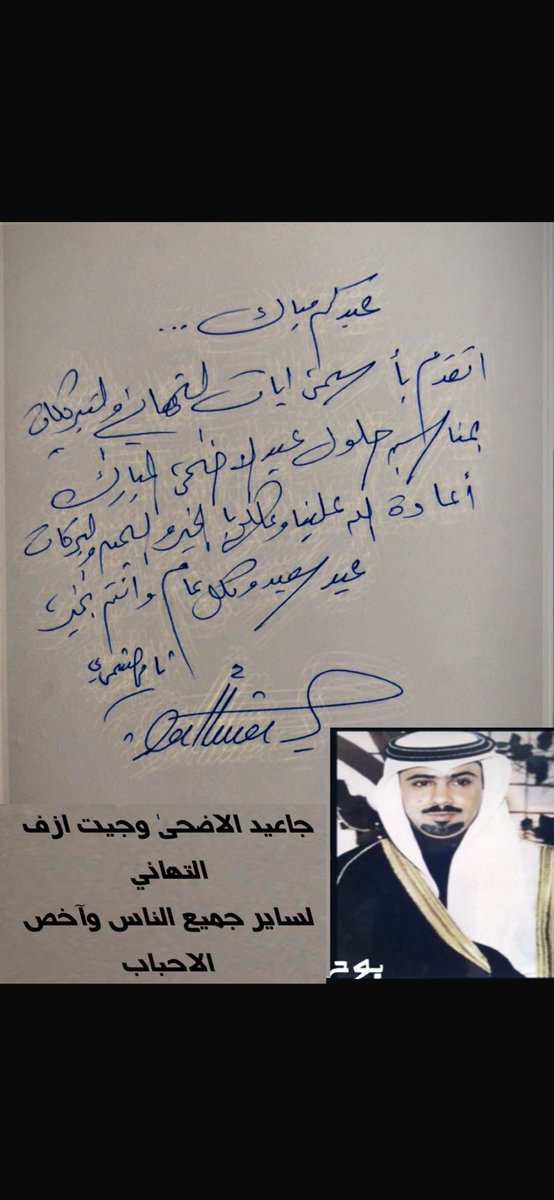 عيدكم مبارك ...
اتقدم بأ سمى ايات التهاني والتبريكات
بمناسبه حلول عيد الاضحى المبارك
أعادة الله علينا وعليكم بالخير واليمن والبركات
عيد سعيد وكل عام وانتم بخير
جاعيد الاضحىٰ وجيت ازف
التهاني
لساير جميع الناس وآخص
الاحباب
بوح